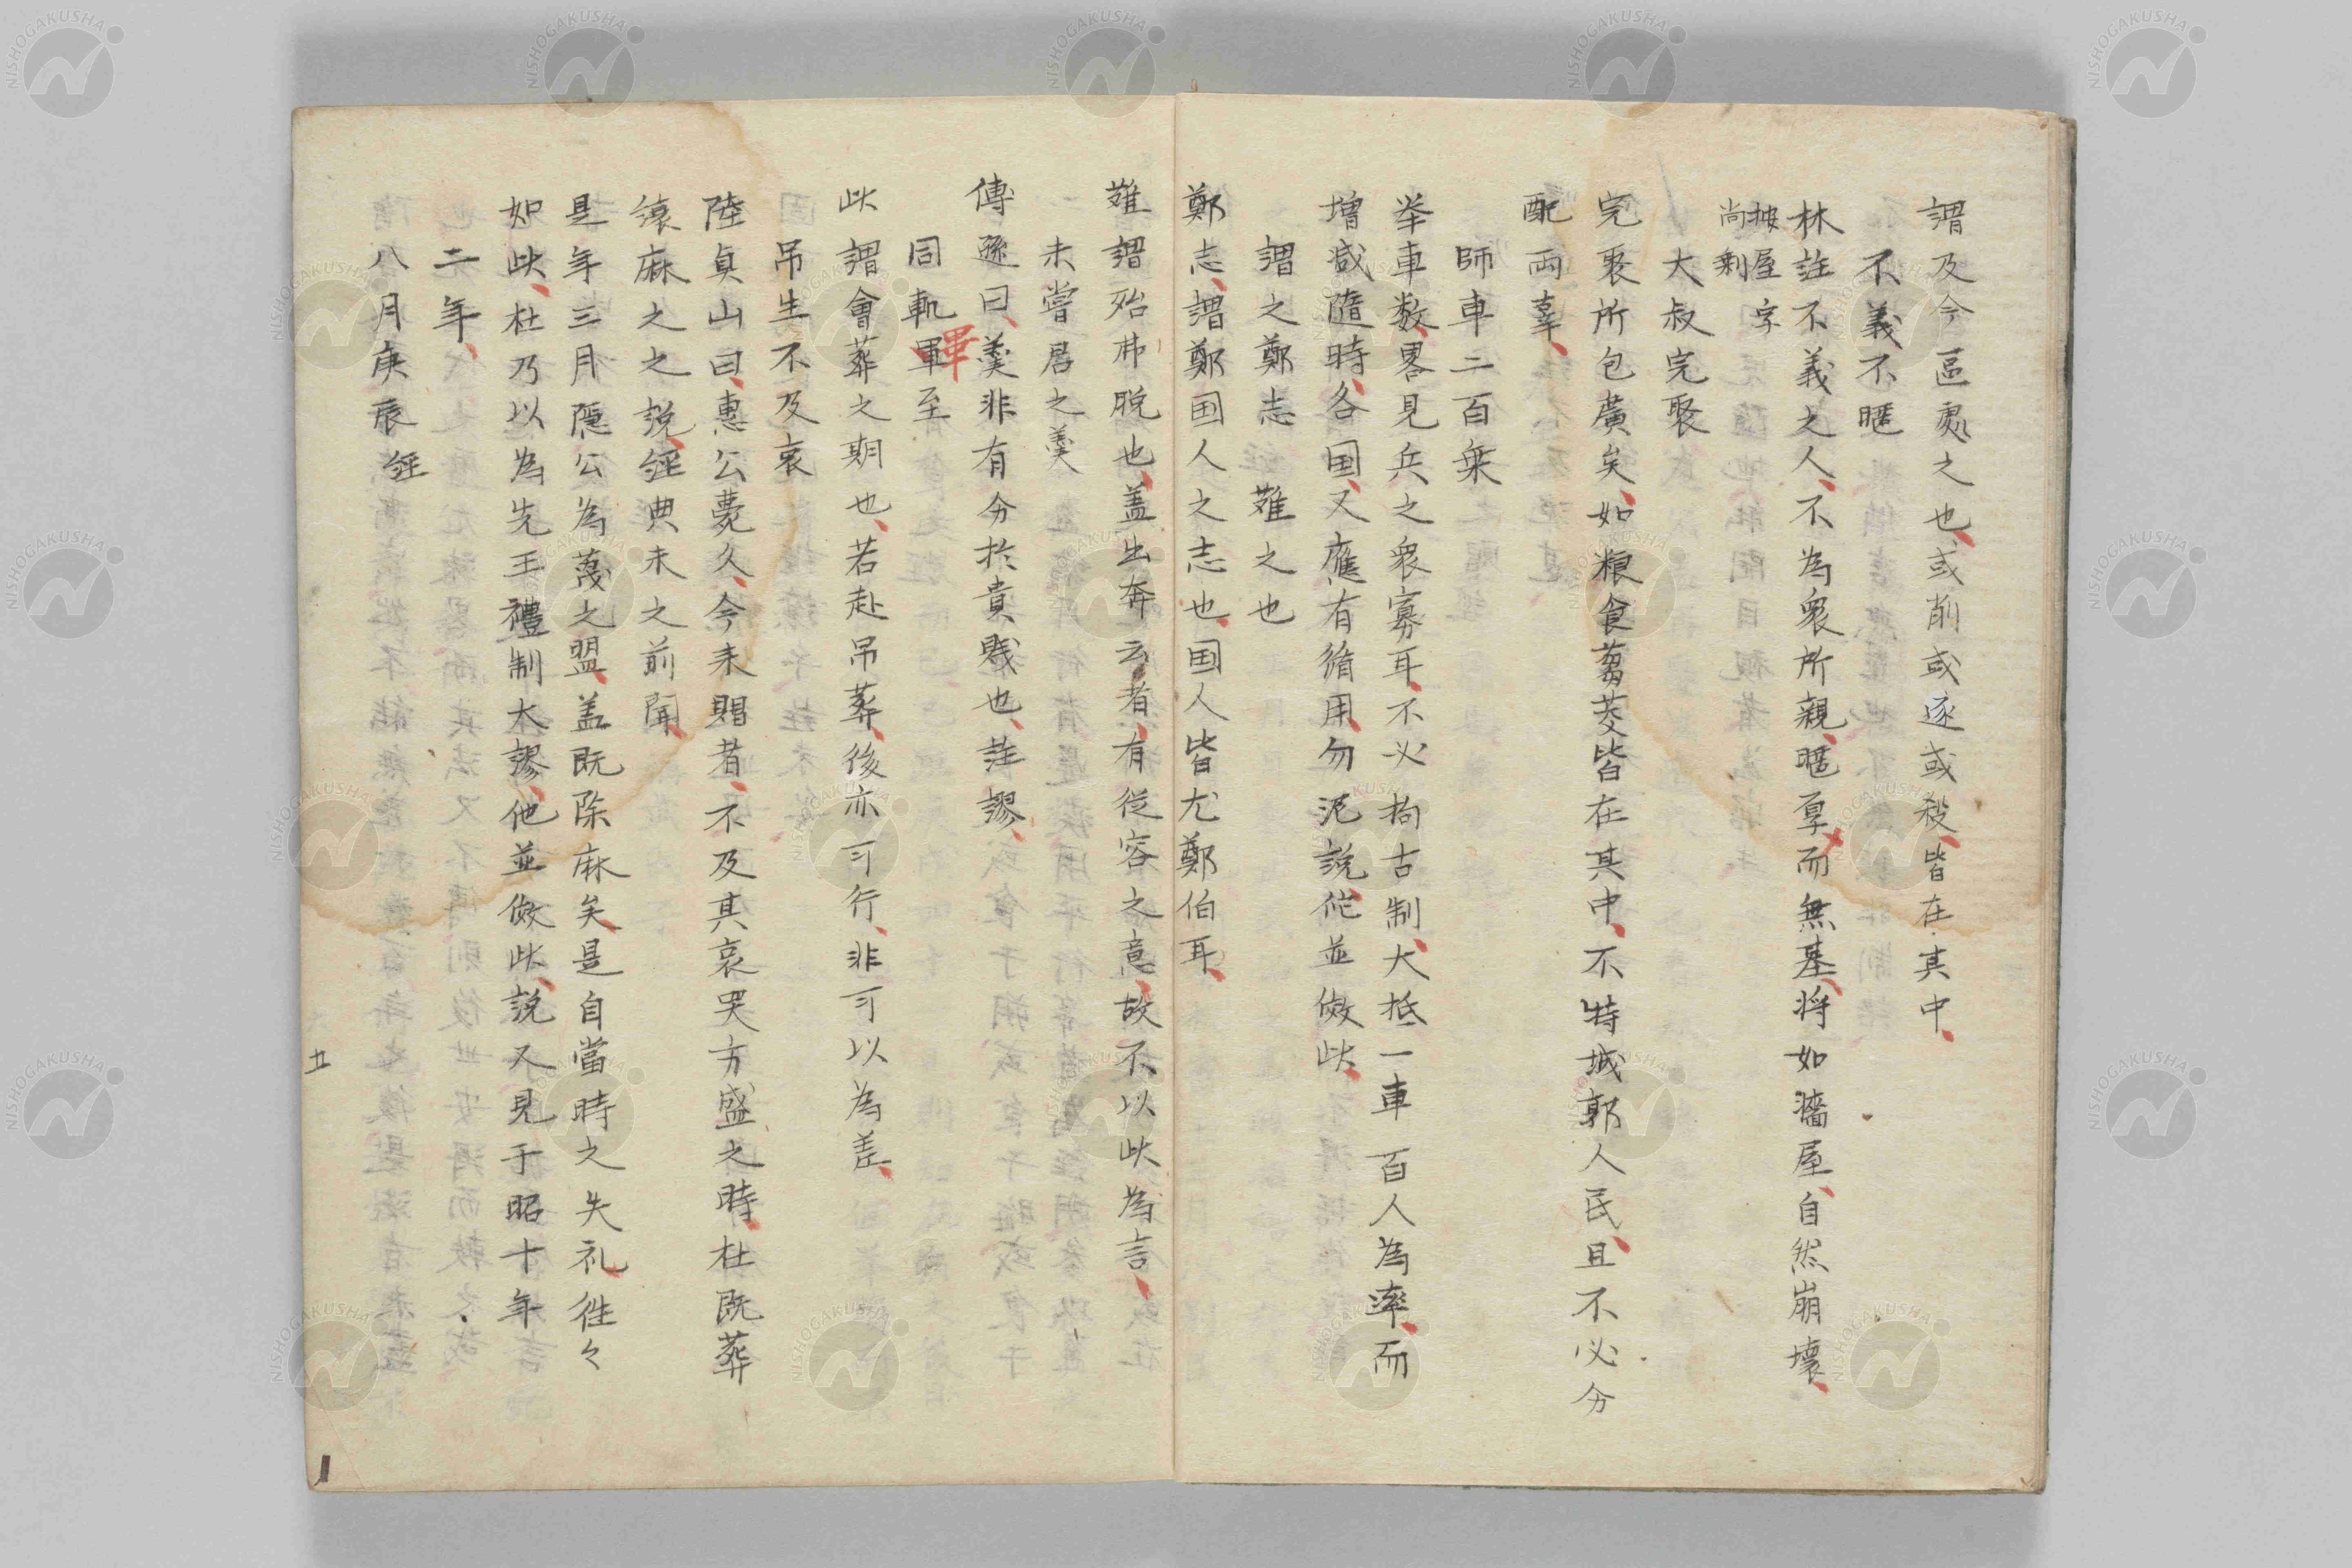 謂及今區處之也、或削或逐或殺、皆在其中、
不義不暱
林註不義之人、不為衆所親、暱厚而無基、将如墻屋、自然崩壊、
按屋字
尚剩
大叔完聚
完聚所包廣矣、如粮食蒭茭皆在其中、不特城郭人民、且不必分
配両辜、
師車二百乗
举車数、畧見兵之衆寡耳、不必拘古制、大抵一車百人為率、而
増减隨時、各国、又應有循用、勿泥説佗並倣此、
謂之鄭志 難之也
鄭志、謂鄭国人之志也、国人皆尤鄭伯耳、
難謂殆弗脱也、盖出奔云者、有従容之意、故不以此為言、
未嘗君之羹
傳遜曰、羹非有分於貴賎也、註謬、
同軌軍至
畢
此謂會葬之期也、若赴吊葬、後亦可行、非可以為差、
吊生不及哀
陸貞山曰、惠公薨久、今未賵者、不及其哀哭方盛之時、杜既葬
縗麻之之説、経典未之前聞、
是年三月隠公為蔑之盟、盖既除麻矣、是自當時之失礼徃々
如此、杜乃以為先王禮制大謬、他並倣此、説又見于昭十年
二年、
八月庚辰経
五
NISHOGAKUSHA